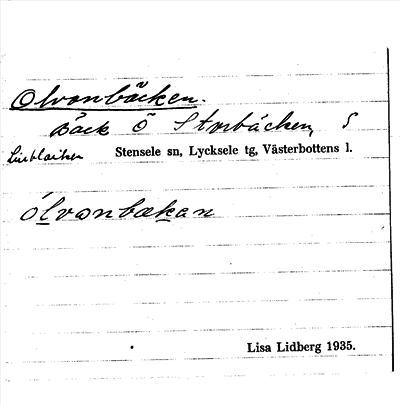 Olvonbäcken.
Bäck Ö Storbäcken, S
Stensele sn, Lycksele tg, Västerbottens l.
ólvonbækan
Lisa Lidberg 1935.